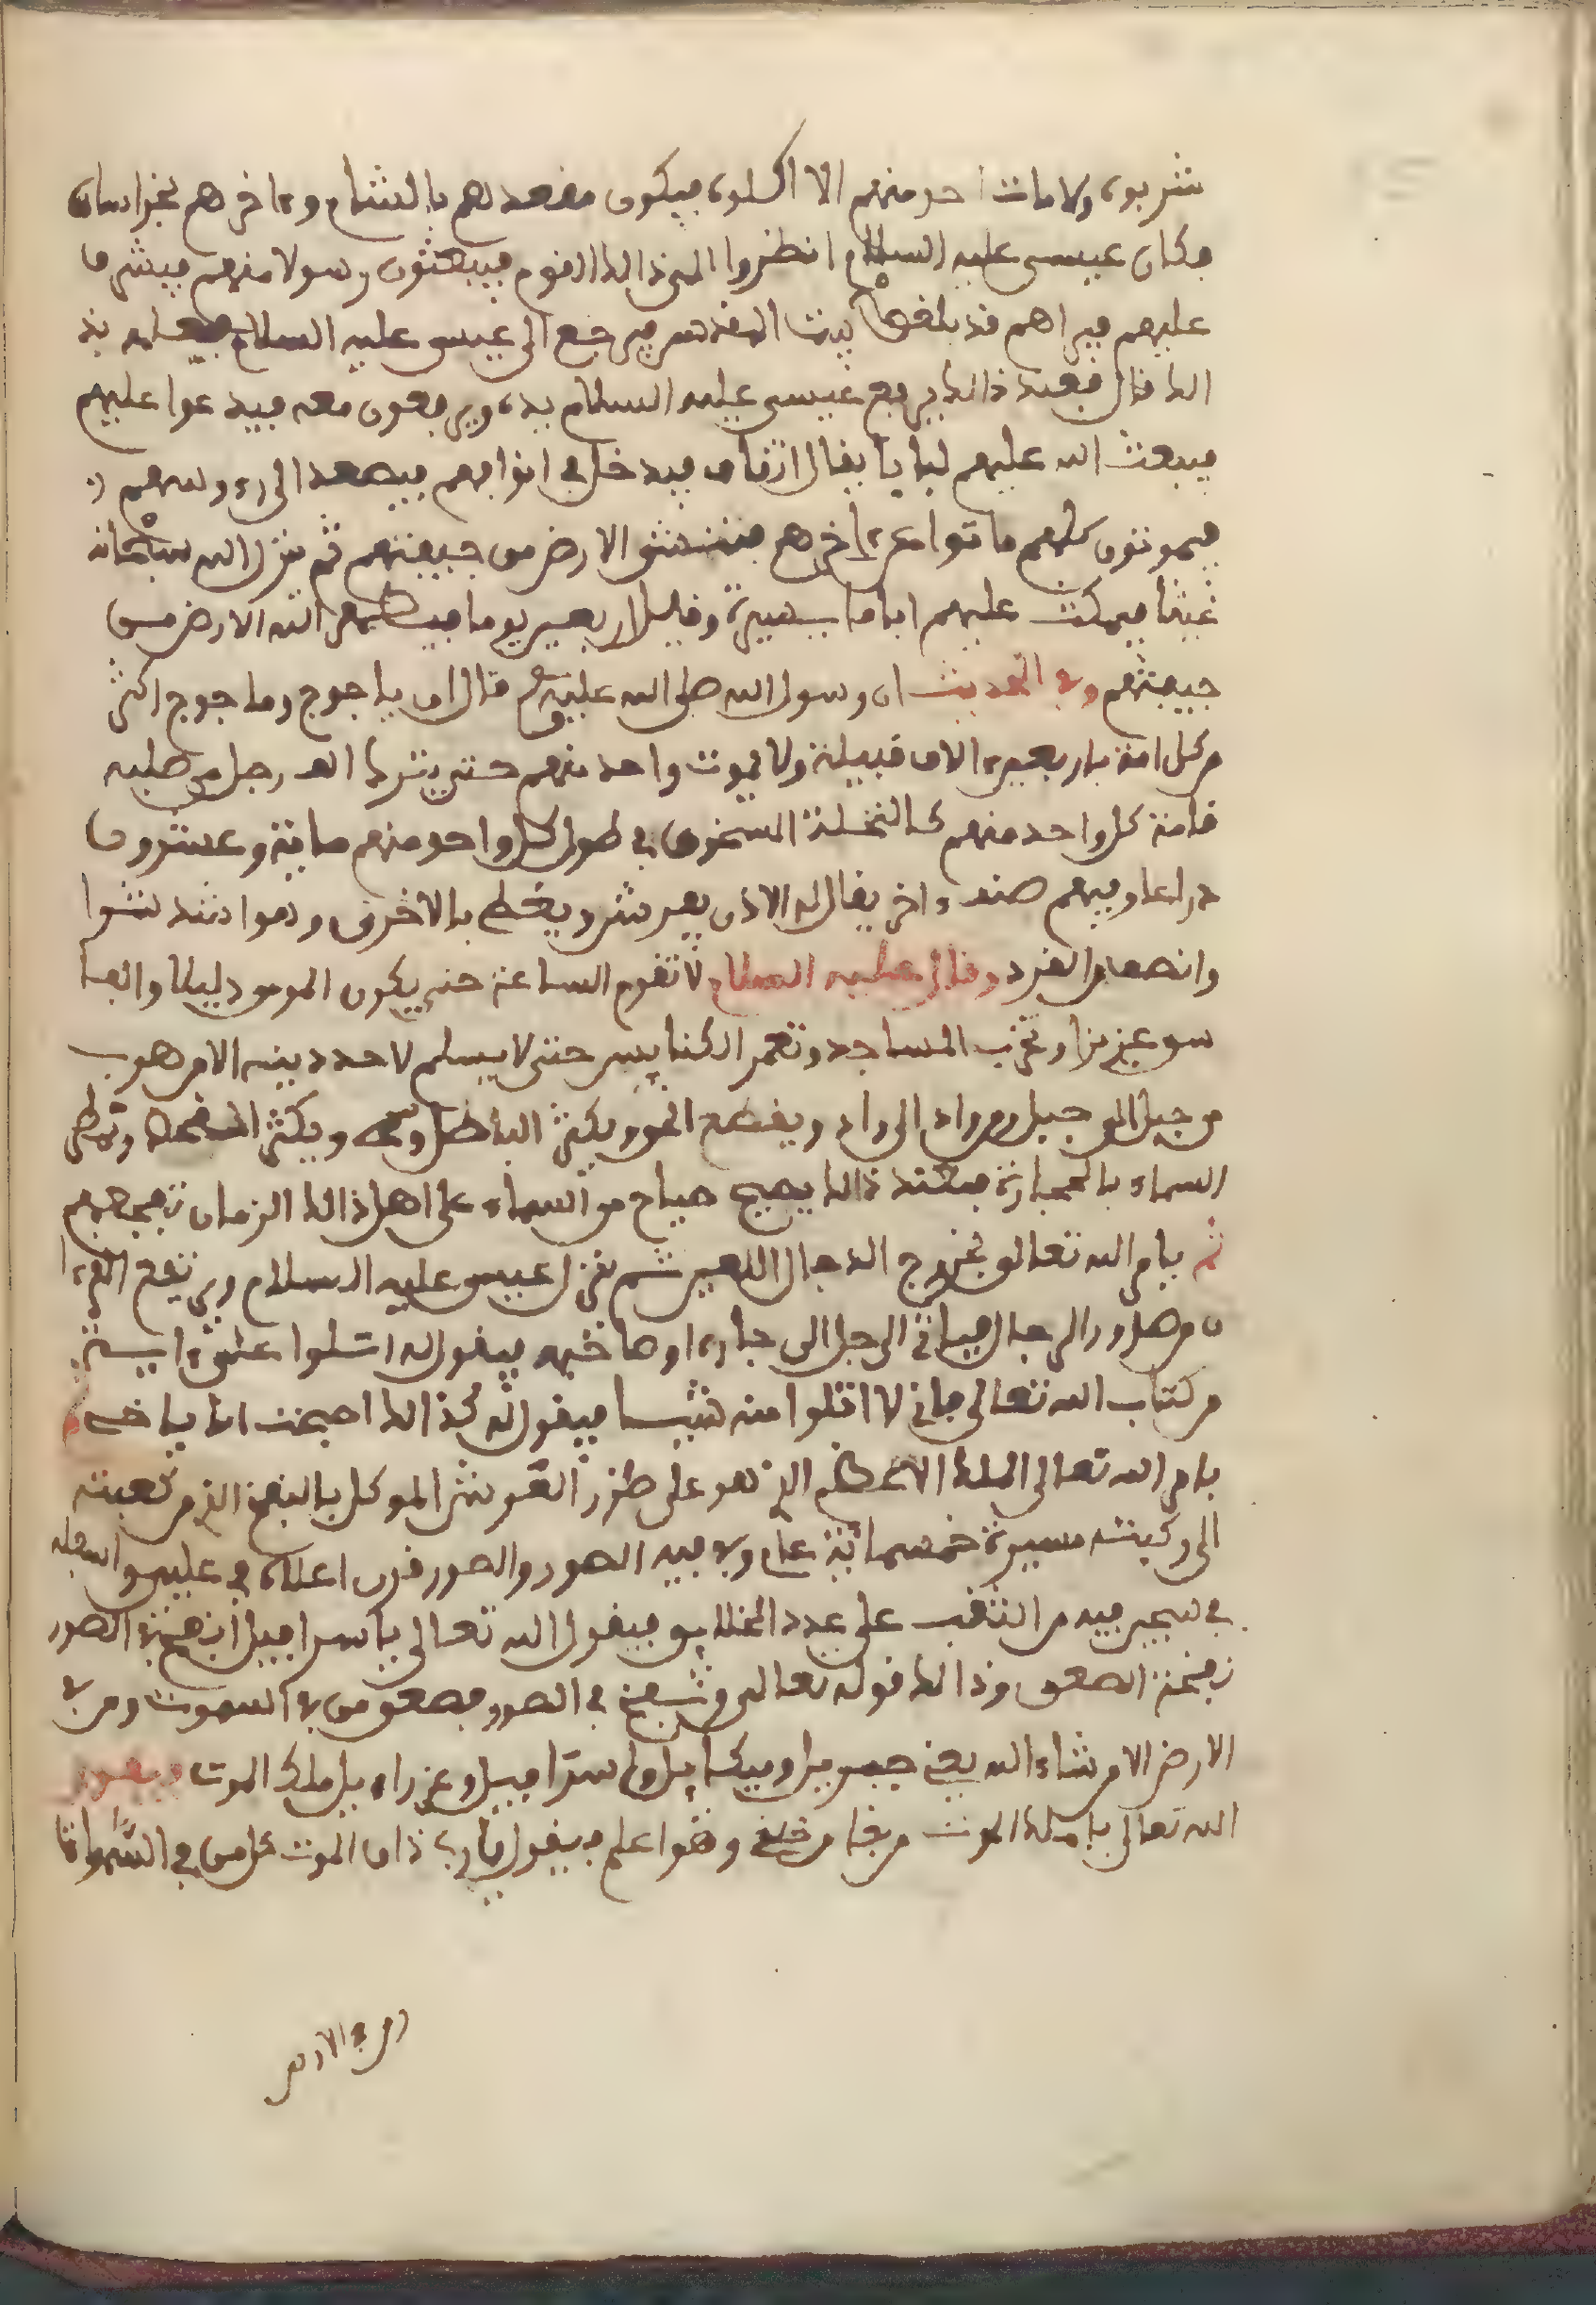 شربوه ولا مات احد منهم الا اكلوه فيكون مقعدهم بالشام وءاخرهم بخراسان
فكان عيسى عليه السلام انظروا الى ذالك القوم فيبعثون رسولا منهم فيشرفا
عليهم فيراهم قد بلغوا بيت المقدس فيرجع الى عيسى عليه السلام فيعلمه بذ
الك قال فعند ذالك يرفع عيسى عليه السلام يده ويرفعون معه فيدعوا عليهم
فيبعث الله عليهم يقال فيدخل في انوافهم فيصعد الى رءوسهم
فيموتون كلهم ماتوا عن ءاخرهم فتنتش الارض من جيفتهم ثم ينزل الله سبحانه
غيثا فيمكث عليهم اياما يسيرة وقليل اربعين يوما فيطهر الله الارض من
جيفتهم وفي الحديث ان رسول الله صلى الله عليه وسلم قال ان ياجوج وماجوج اكثر
من كل امة باربعين الاف قبيلة ولا يموت واحد منهم حتى يترك الف رجل من صلبه
قامة كل واحد منهم كالنخلة السحوق في طول كل واحد منهم مائة وعشرون
ذراعا وفيهم صنف ءاخر يقال له الاذن يفرش ويغطى بالاخرى
وقال عليه السلام لا تقوم الساعة حتى يكون المومن ذليلا والفا
سق عزيزا وتخرب المساجد وتعمر الكنايس حتى لا يسلم لاحد دينه الا من هرب
من جبل الى جبل ومن واد الى واد ويقطع الحق ويكثر الباطل ويكثر وتمطر
السماء بالحجارة فعند ذالك يصيح صياح من السماء على اهل ذالك الزمان
ثم يامر الله تعالى بخروج الدجال اللعين ثم ينزل عيسى عليه السلام ويرتفع القرءا
ن من صدور الرجال فياتي الرجل الى جاره او صاحبه فيقول له عن ءاية
من كتاب الله تعالى فاني لا منه شيئا فيقول له كذالك اصبحت انا ياخي
يامر الله تعالى الملك الاعظم الذي هو على طرر العرش الموكل بالنفخ الذي من كعبته
الى ركبته مسيرة خمسمائة عام وفي فيه الصور والصور قرن اعلاه في عليين واسفله
في سجين فيه من الثقب على عدد الخلايق فيقول الله تعالى ياسرافيل انفخ في الصور
نفخة الصعق وذالك قوله تعالى ونفخ في الصور فصعق من في السموت ومن في
الارض الا من شاء الله يعني جبريل وميكاييل واسرافيل وعزراءيل ملك الموت فيقول
الله تعالى يا ملك الموت من بقا من خلقي وهو اعلم فيقول يا رب ذاق الموت كل من في السموات
ومن في الارض